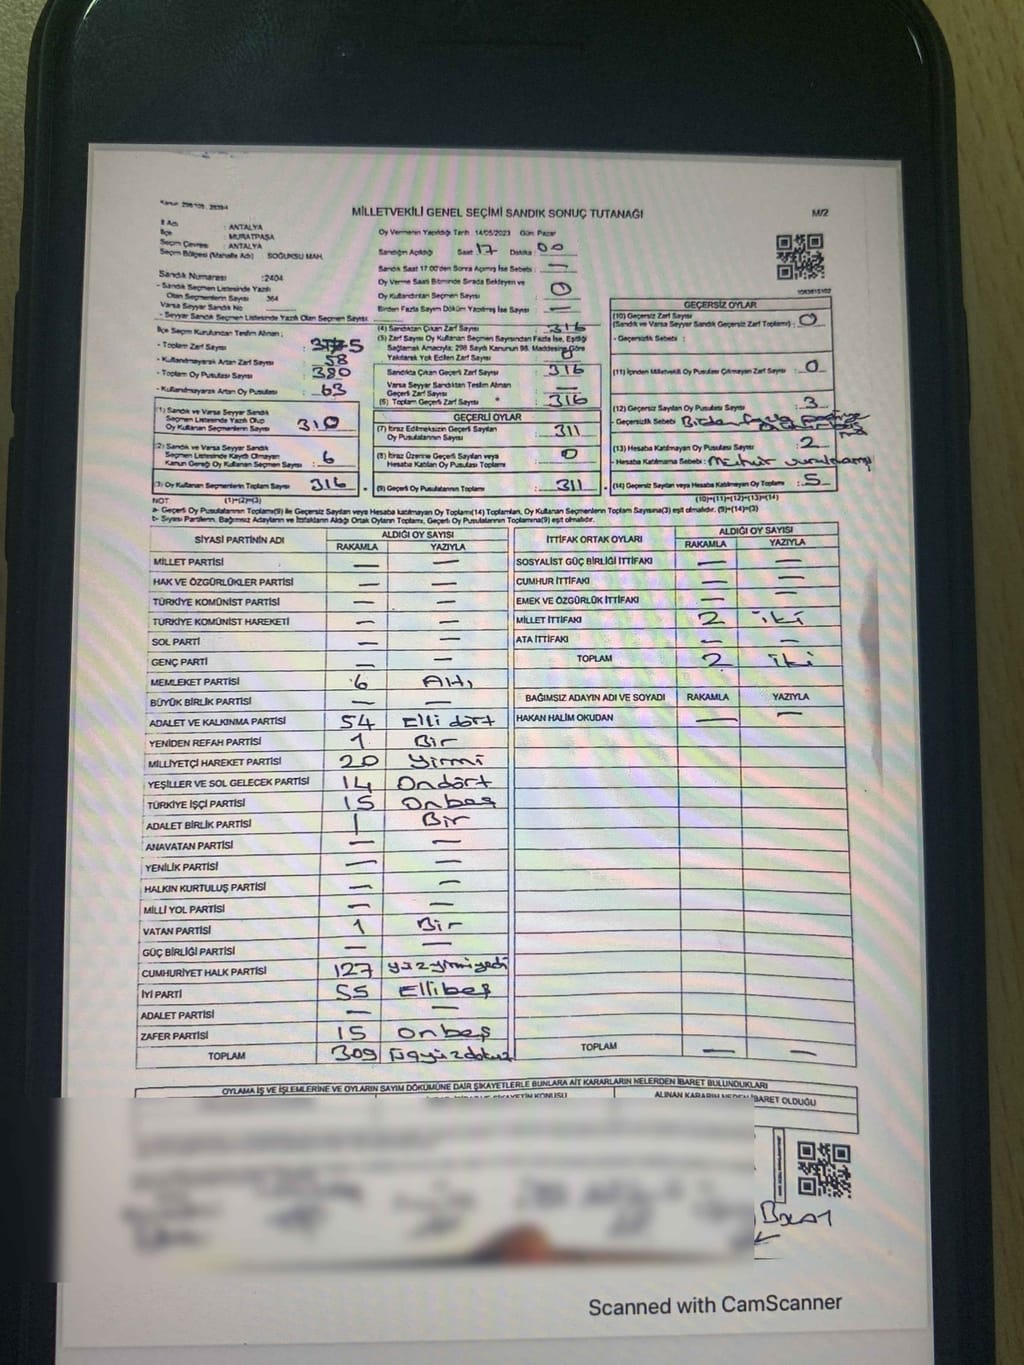 Kanun: 298/105, 2839/4
MİLLETVEKİLİ GENEL SEÇİMİ SANDIK SONUÇ TUTANAĞI
M/2
İl Adı : ANTALYA
İlçe : MURATPAŞA
Seçim Çevresi : ANTALYA
Seçim Bölgesi (Mahalle Adı) SOĞUKSU MAH.
Oy Vermenin Yapıldığı Tarih 14/05/2023 Gün Pazar
Sandığın Açıldığı Saat 17 Dakika : 00
Sandık Saat 17:00'den Sonra Açılmış İse Sebebi : —
Oy Verme Saati Bitiminde Sırada Bekleyen ve
Oy Kullandırılan Seçmen Sayısı : 0
Birden Fazla Sayım Döküm Yapılmış İse Sayısı : —
Sandık Numarası :2404
- Sandık Seçmen Listesinde Yazılı
Olan Seçmenlerin Sayısı 364
Varsa Seyyar Sandık No
- Seyyar Sandık Seçmen Listesinde Yazılı Olan Seçmen Sayısı
İlçe Seçim Kurulundan Teslim Alınan ;
- Toplam Zarf Sayısı :
- Kullanılmayarak Artan Zarf Sayısı : 58
- Toplam Oy Pusulası Sayısı : 380
- Kullanılmayarak Artan Oy Pusulası : 63
(1) Sandık ve Varsa Seyyar Sandık
Seçmen Listesinde Yazılı Olup
Oy Kullanan Seçmen Sayısı : 310
(2) Sandık ve Varsa Seyyar Sandık
Seçmen Listesinde Kayıtlı Olmayan
Kanun Gereği Oy Kullanan Seçmen Sayısı : 6
(3) Oy Kullanan Seçmenlerin Toplam Sayısı : 316
(1)+(2)=(3)
(4) Sandıktan Çıkan Zarf Sayısı : 316
(5) Zarf Sayısı Oy Kullanan Seçmen Sayısından Fazla İse, Eşitliği
Sağlamak Amacıyla; 298 Sayılı Kanunun 98. Maddesine Göre
Yakılarak Yok Edilen Zarf Sayısı : 0
Sandıkta Çıkan Geçerli Zarf Sayısı : 316
Varsa Seyyar Sandıktan Teslim Alınan
Geçerli Zarf Sayısı : —
(6) Toplam Geçerli Zarf Sayısı : 316
GEÇERLİ OYLAR
(7) İtiraz Edilmeksizin Geçerli Sayılan
Oy Pusulalarının Sayısı : 311
(8) İtiraz Üzerine Geçerli Sayılan veya
Hesaba Katılan Oy Pusulası Toplamı : 0
(9) Geçerli Oy Pusulalarının Toplamı : 311
GEÇERSİZ OYLAR
(10) Geçersiz Zarf Sayısı
(Sandık ve Varsa Seyyar Sandık Geçersiz Zarf Toplamı) : 0
- Geçersizlik Sebebi :
(11) İçinden Milletvekili Oy Pusulası Çıkmayan Zarf Sayısı : 0
(12) Geçersiz Sayılan Oy Pusulası Sayısı : 3
- Geçersizlik Sebebi Birden fazla
(13) Hesaba Katılmayan Oy Pusulası Sayısı : 2
- Hesaba Katılmama Sebebi : Mühür
(14) Geçersiz Sayılan veya Hesaba Katılmayan Oy Toplamı : 5
(10)+(11)+(12)+(13)=(14)
NOT
a- Geçerli Oy Pusulaları Toplamı(9) ile Geçersiz Sayılan veya Hesaba Katılmayan Oy Toplamı(14) Toplamları, Oy Kullanan Seçmenlerin Toplam Sayısına(3) eşit olmalıdır. (9)+(14)=(3)
b- Siyasi Partilerin, Bağımsız Adayların ve İttifakların Aldığı Ortak Oyların Toplamı, Geçerli Oy Pusulalarının Toplamına(9) eşit olmalıdır.
SİYASİ PARTİNİN ADI ALDIĞI OY SAYISI
RAKAMLA YAZIYLA
MİLLET PARTİSİ — —
HAK VE ÖZGÜRLÜKLER PARTİSİ — —
TÜRKİYE KOMÜNİST PARTİSİ — —
TÜRKİYE KOMÜNİST HAREKETİ — —
SOL PARTİ — —
GENÇ PARTİ — —
MEMLEKET PARTİSİ 6 Altı
BÜYÜK BİRLİK PARTİSİ — —
ADALET VE KALKINMA PARTİSİ 54 Elli dört
YENİDEN REFAH PARTİSİ 1 Bir
MİLLİYETÇİ HAREKET PARTİSİ 20 Yirmi
YEŞİLLER VE SOL GELECEK PARTİSİ 14 Ondört
TÜRKİYE İŞÇİ PARTİSİ 15 Onbeş
ADALET BİRLİK PARTİSİ 1 Bir
ANAVATAN PARTİSİ — —
YENİLİK PARTİSİ — —
HALKIN KURTULUŞ PARTİSİ — —
MİLLİ YOL PARTİSİ — —
VATAN PARTİSİ 1 Bir
GÜÇ BİRLİĞİ PARTİSİ — —
CUMHURİYET HALK PARTİSİ 127 yüzyirmiyedi
İYİ PARTİ 55 Ellibeş
ADALET PARTİSİ — —
ZAFER PARTİSİ 15 onbeş
TOPLAM 309 üçyüzdokuz
İTTİFAK ORTAK OYLARI ALDIĞI OY SAYISI
RAKAMLA YAZIYLA
SOSYALİST GÜÇ BİRLİĞİ İTTİFAKI — —
CUMHUR İTTİFAKI — —
EMEK VE ÖZGÜRLÜK İTTİFAKI — —
MİLLET İTTİFAKI 2 iki
ATA İTTİFAKI — —
TOPLAM 2 iki
BAĞIMSIZ ADAYIN ADI VE SOYADI RAKAMLA YAZIYLA
HAKAN HALİM OKUDAN — —
TOPLAM — —
OYLAMA İŞ VE İŞLEMLERİNE VE OYLARIN SAYIM DÖKÜMÜNE DAİR ŞİKAYETLERLE BUNLARA AİT KARARLARIN NELERDEN İBARET BULUNDUKLARI
KONUSU
ALINAN KARARIN NEDEN İBARET OLDUĞU
Scanned with CamScanner